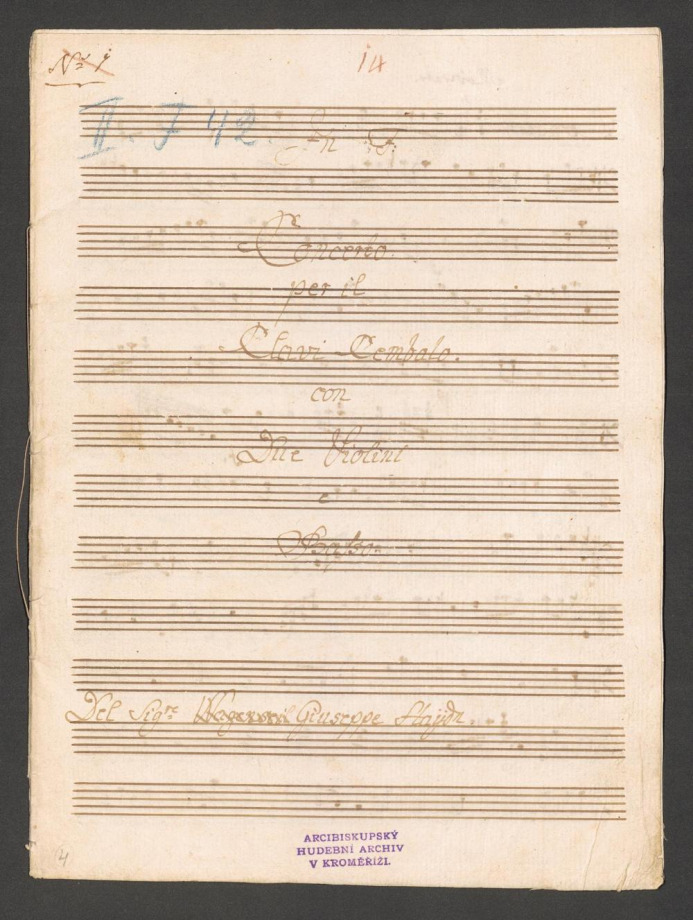 No 1
14
II. F 42.
In F:
Concerto.
per il
Clavi Cembalo.
con
Due Violini
e
Basso.
Del Sigre Wagenseil Giuseppe Haydn
ARCIBISKUPSKÝ
HUDEBNÍ ARCHIV
V KROMĚŘÍŽI.
14